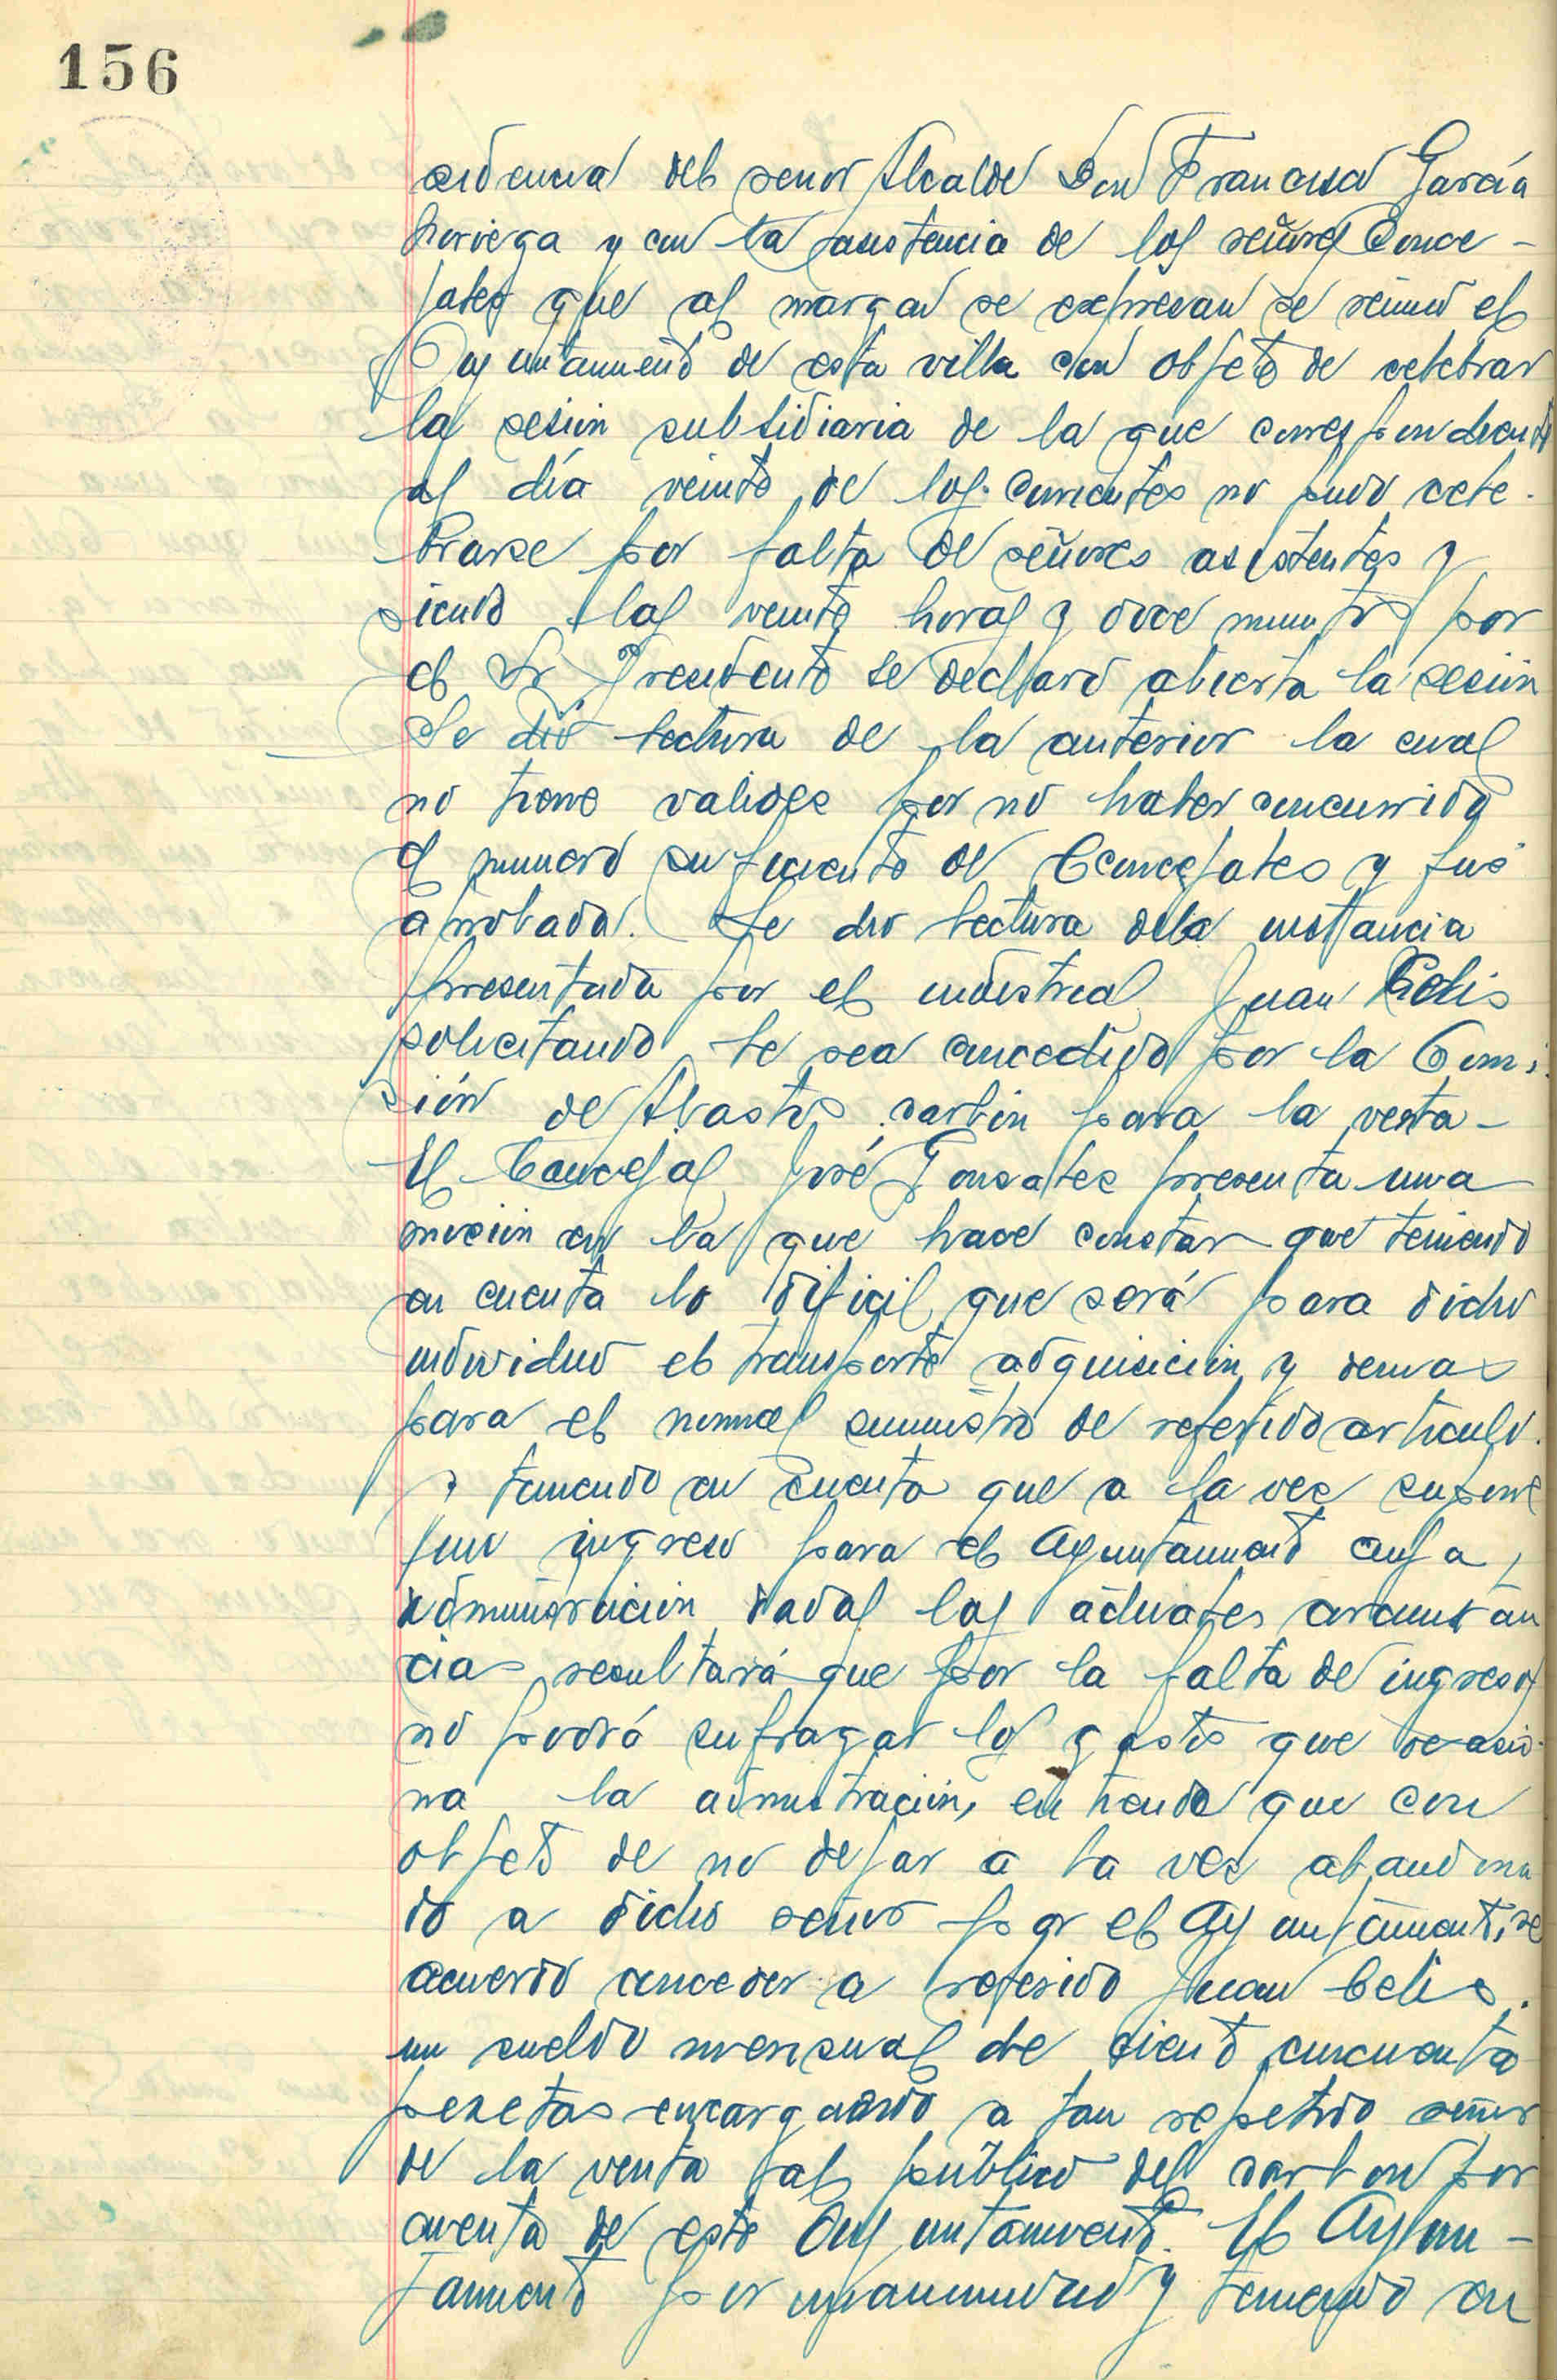 156
sidencia del señor Alcalde Don Francisco García
Noriega y con la asistencia de los señores Conce-
jales que al margen se expresan se reunió el
Ayuntamiento de esta villa con objeto de celebrar
la sesión subsidiaria de la que correspondiendo
al día veinte de los corrientes no pudo cele-
brarse por falta de señores asistentes y
siendo las veinte horas y doce minutos por
el Sr. Presidente se declaró abierta la sesión
Se dió lectura de la anterior la cual
no tiene validez por no haber concurrido
el numero suficiente de Concejales y fué
aprobada. Se dio lectura de la instancia
presentada por el industrial Juan Celis
solicitando le sea concedido por la Comi-
sión de Abastos carbón para la venta-
El Concejal José Gonzalez presenta una
moción en la que hace constar que teniendo
en cuenta lo dificil que será para dicho
individuo el transporte adquisición y demas
para el normal suministro de referido articulo.
y teniendo en cuenta que a la vez supone
un ingreso para el Ayuntamiento cuya
administracion dadas las actuales circunstan
cias resultará que por la falta de ingresos
no podrá sufragar los gastos que ocasio-
na la admistración, entiende que con
objeto de no dejar a la vez abandona
do a dicho señor por el Ayuntamiento, se
acuerdo conceder a referido Juan Celis.
un sueldo mensual de ciento cincuenta
pesetas encargando a tan repetido señor
de la venta al público del carbon por
cuenta de este Ayuntamiento. El Ayun-
tamiento por unanimidad y teniendo en